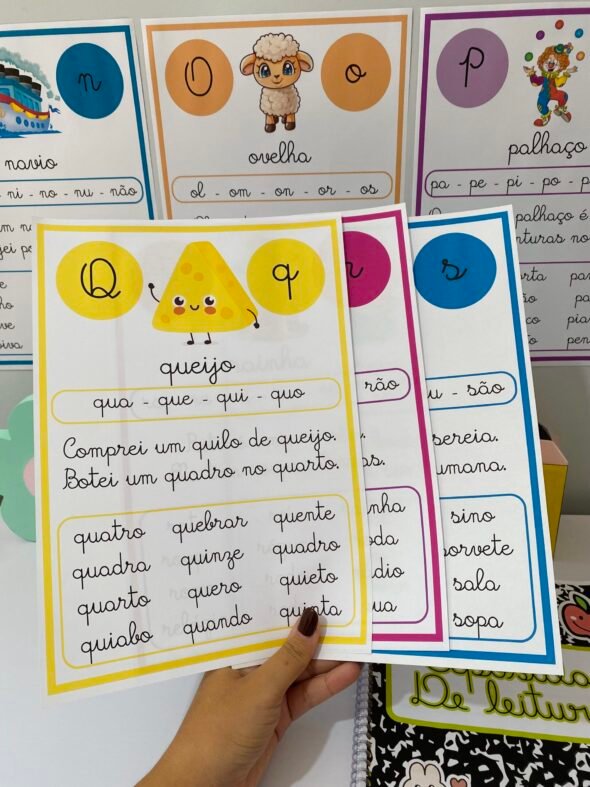 n
navio
ni - no - nu - não
O o
ovelha
ol - om - on - or - os
P
palhaço
pa - pe - pi - po
palhaço é
Q q
queijo
qua - que - qui - quo
Comprei um quilo de queijo.
Botei um quadro no quarto.
quatro quebrar quente
quadra quinze quadro
quarto quero quieto
quiabo quando quinta
rão
s
são
sereia.
umana.
sino
sorvete
sala
sopa
De leitur